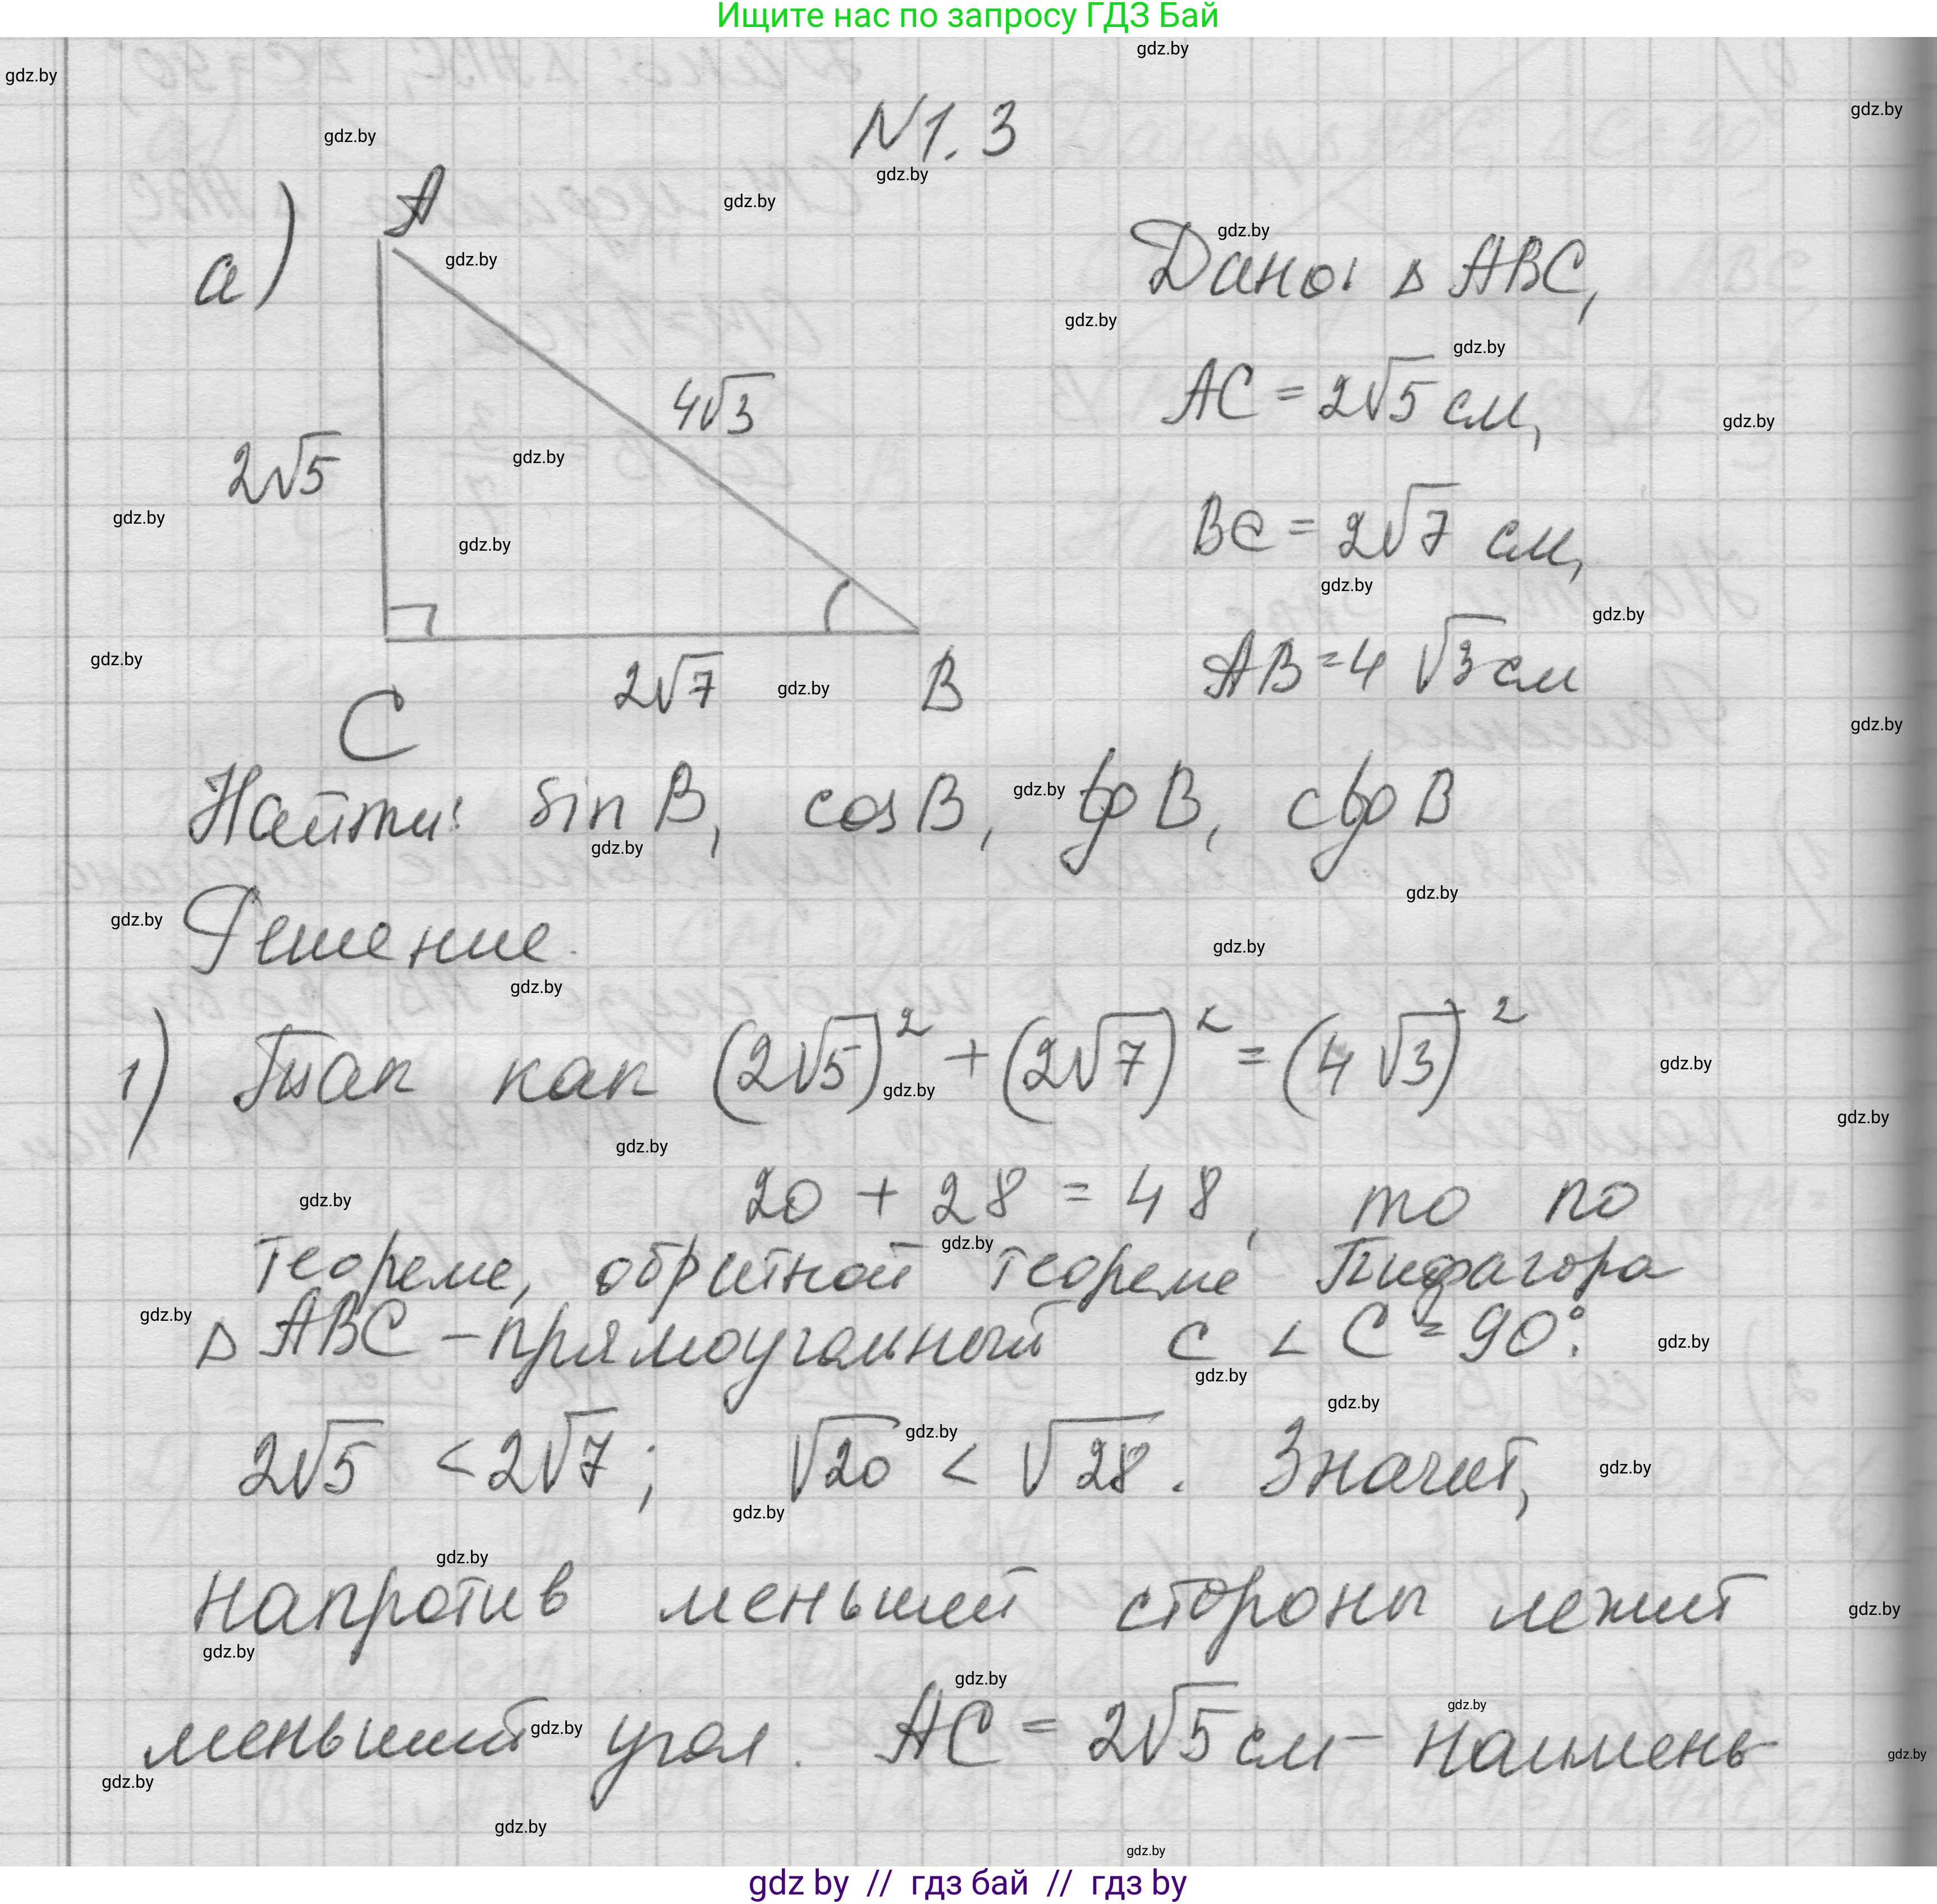 Ищите нас по запросу ГДЗ Бай
N1.3
а)
A
4√3
2√5
2√7
B
C
Дано: Δ ABC,
AC = 2√5 см,
BC = 2√7 см,
AB = 4 √3 см
Найти: sin B, cos B, tg B, ctg B
Решение.
1) Так как (2√5)² + (2√7)² = (4 √3)²
20 + 28 = 48, то по
теореме, обратной теореме Пифагора
Δ ABC – прямоугольный с ∠ C = 90°.
2√5 < 2√7; √20 < √28. Значит,
напротив меньшей стороны лежит
меньший угол. AC = 2√5 см – наимень-
gdz by // гдз бай // гдз by